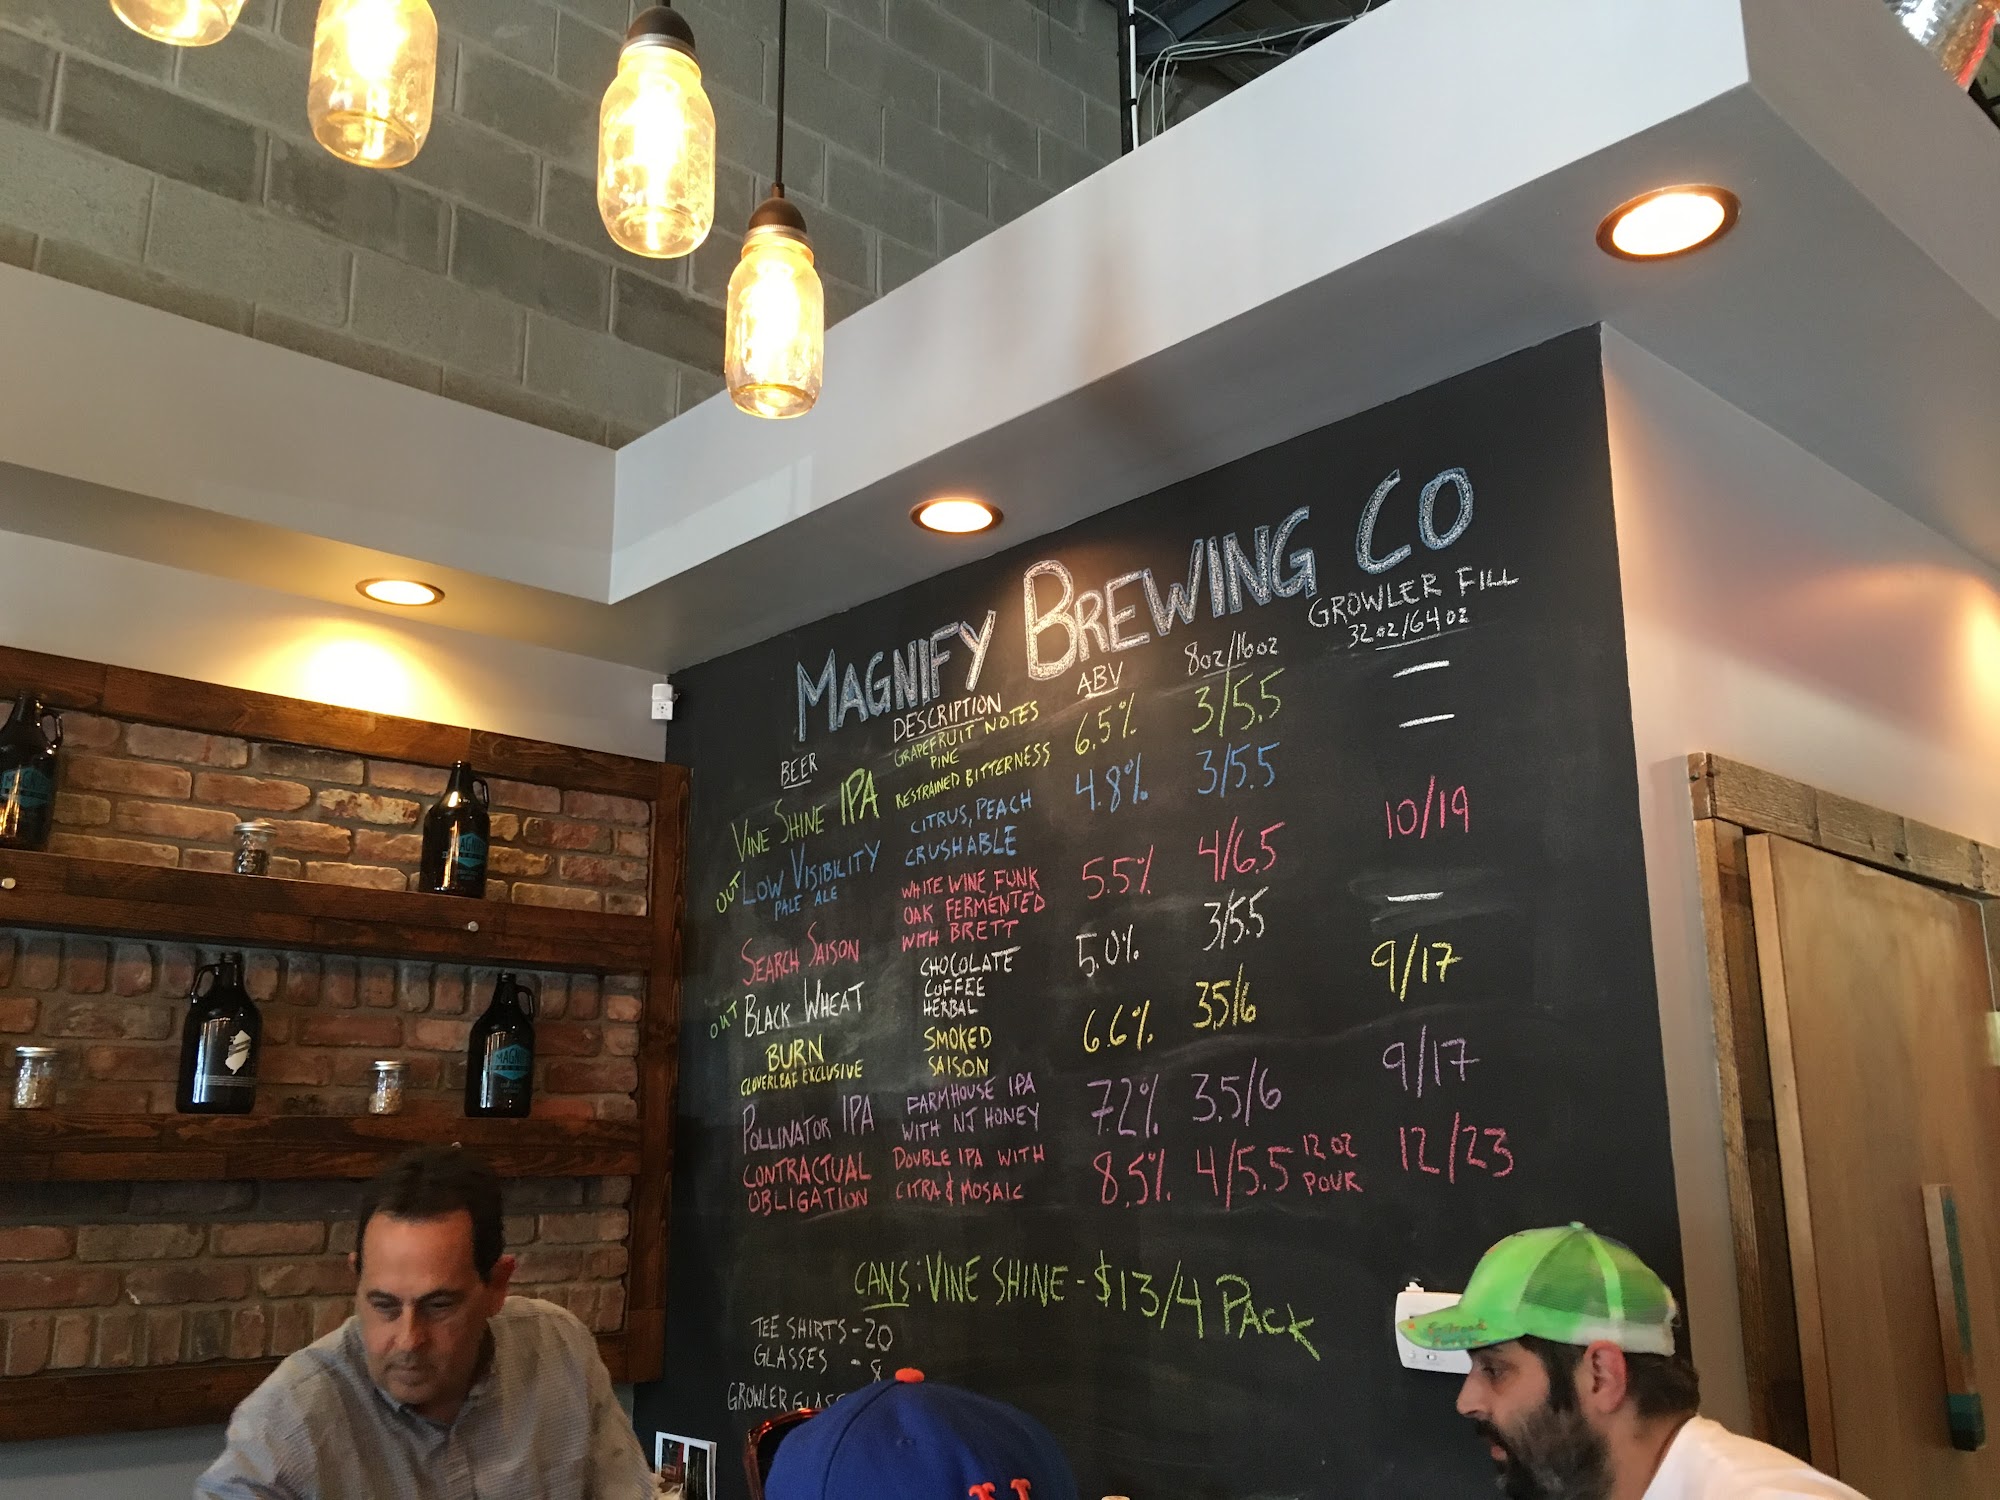 MAGNIFY BREWING CO
BEER DESCRIPTION ABV 8oz/16oz GROWLER FILL
32oz/64oz
VINE SHINE IPA GRAPEFRUIT NOTES 6.5% 3/5.5 —
PINE
RESTRAINED BITTERNESS
OUT LOW VISIBILITY CITRUS, PEACH 4.8% 3/5.5 —
PALE ALE CRUSHABLE
SEARCH SAISON WHITE WINE, FUNK 5.5% 4/6.5 10/19
OAK FERMENTED
WITH BRETT
OUT BLACK WHEAT CHOCOLATE 5.0% 3/5.5 —
COFFEE
HERBAL
BURN SMOKED 6.6% 3.5/6 9/17
CLOVERLEAF EXCLUSIVE SAISON
POLLINATOR IPA FARMHOUSE IPA 7.2% 3.5/6 9/17
WITH NJ HONEY
CONTRACTUAL DOUBLE IPA WITH 8.5% 4/5.5 12 oz 12/23
OBLIGATION CITRA & MOSAIC POUR
CANS: VINE SHINE - $13/4 PACK
TEE SHIRTS - 20
GLASSES - 8
GROWLER
MAGNIFY